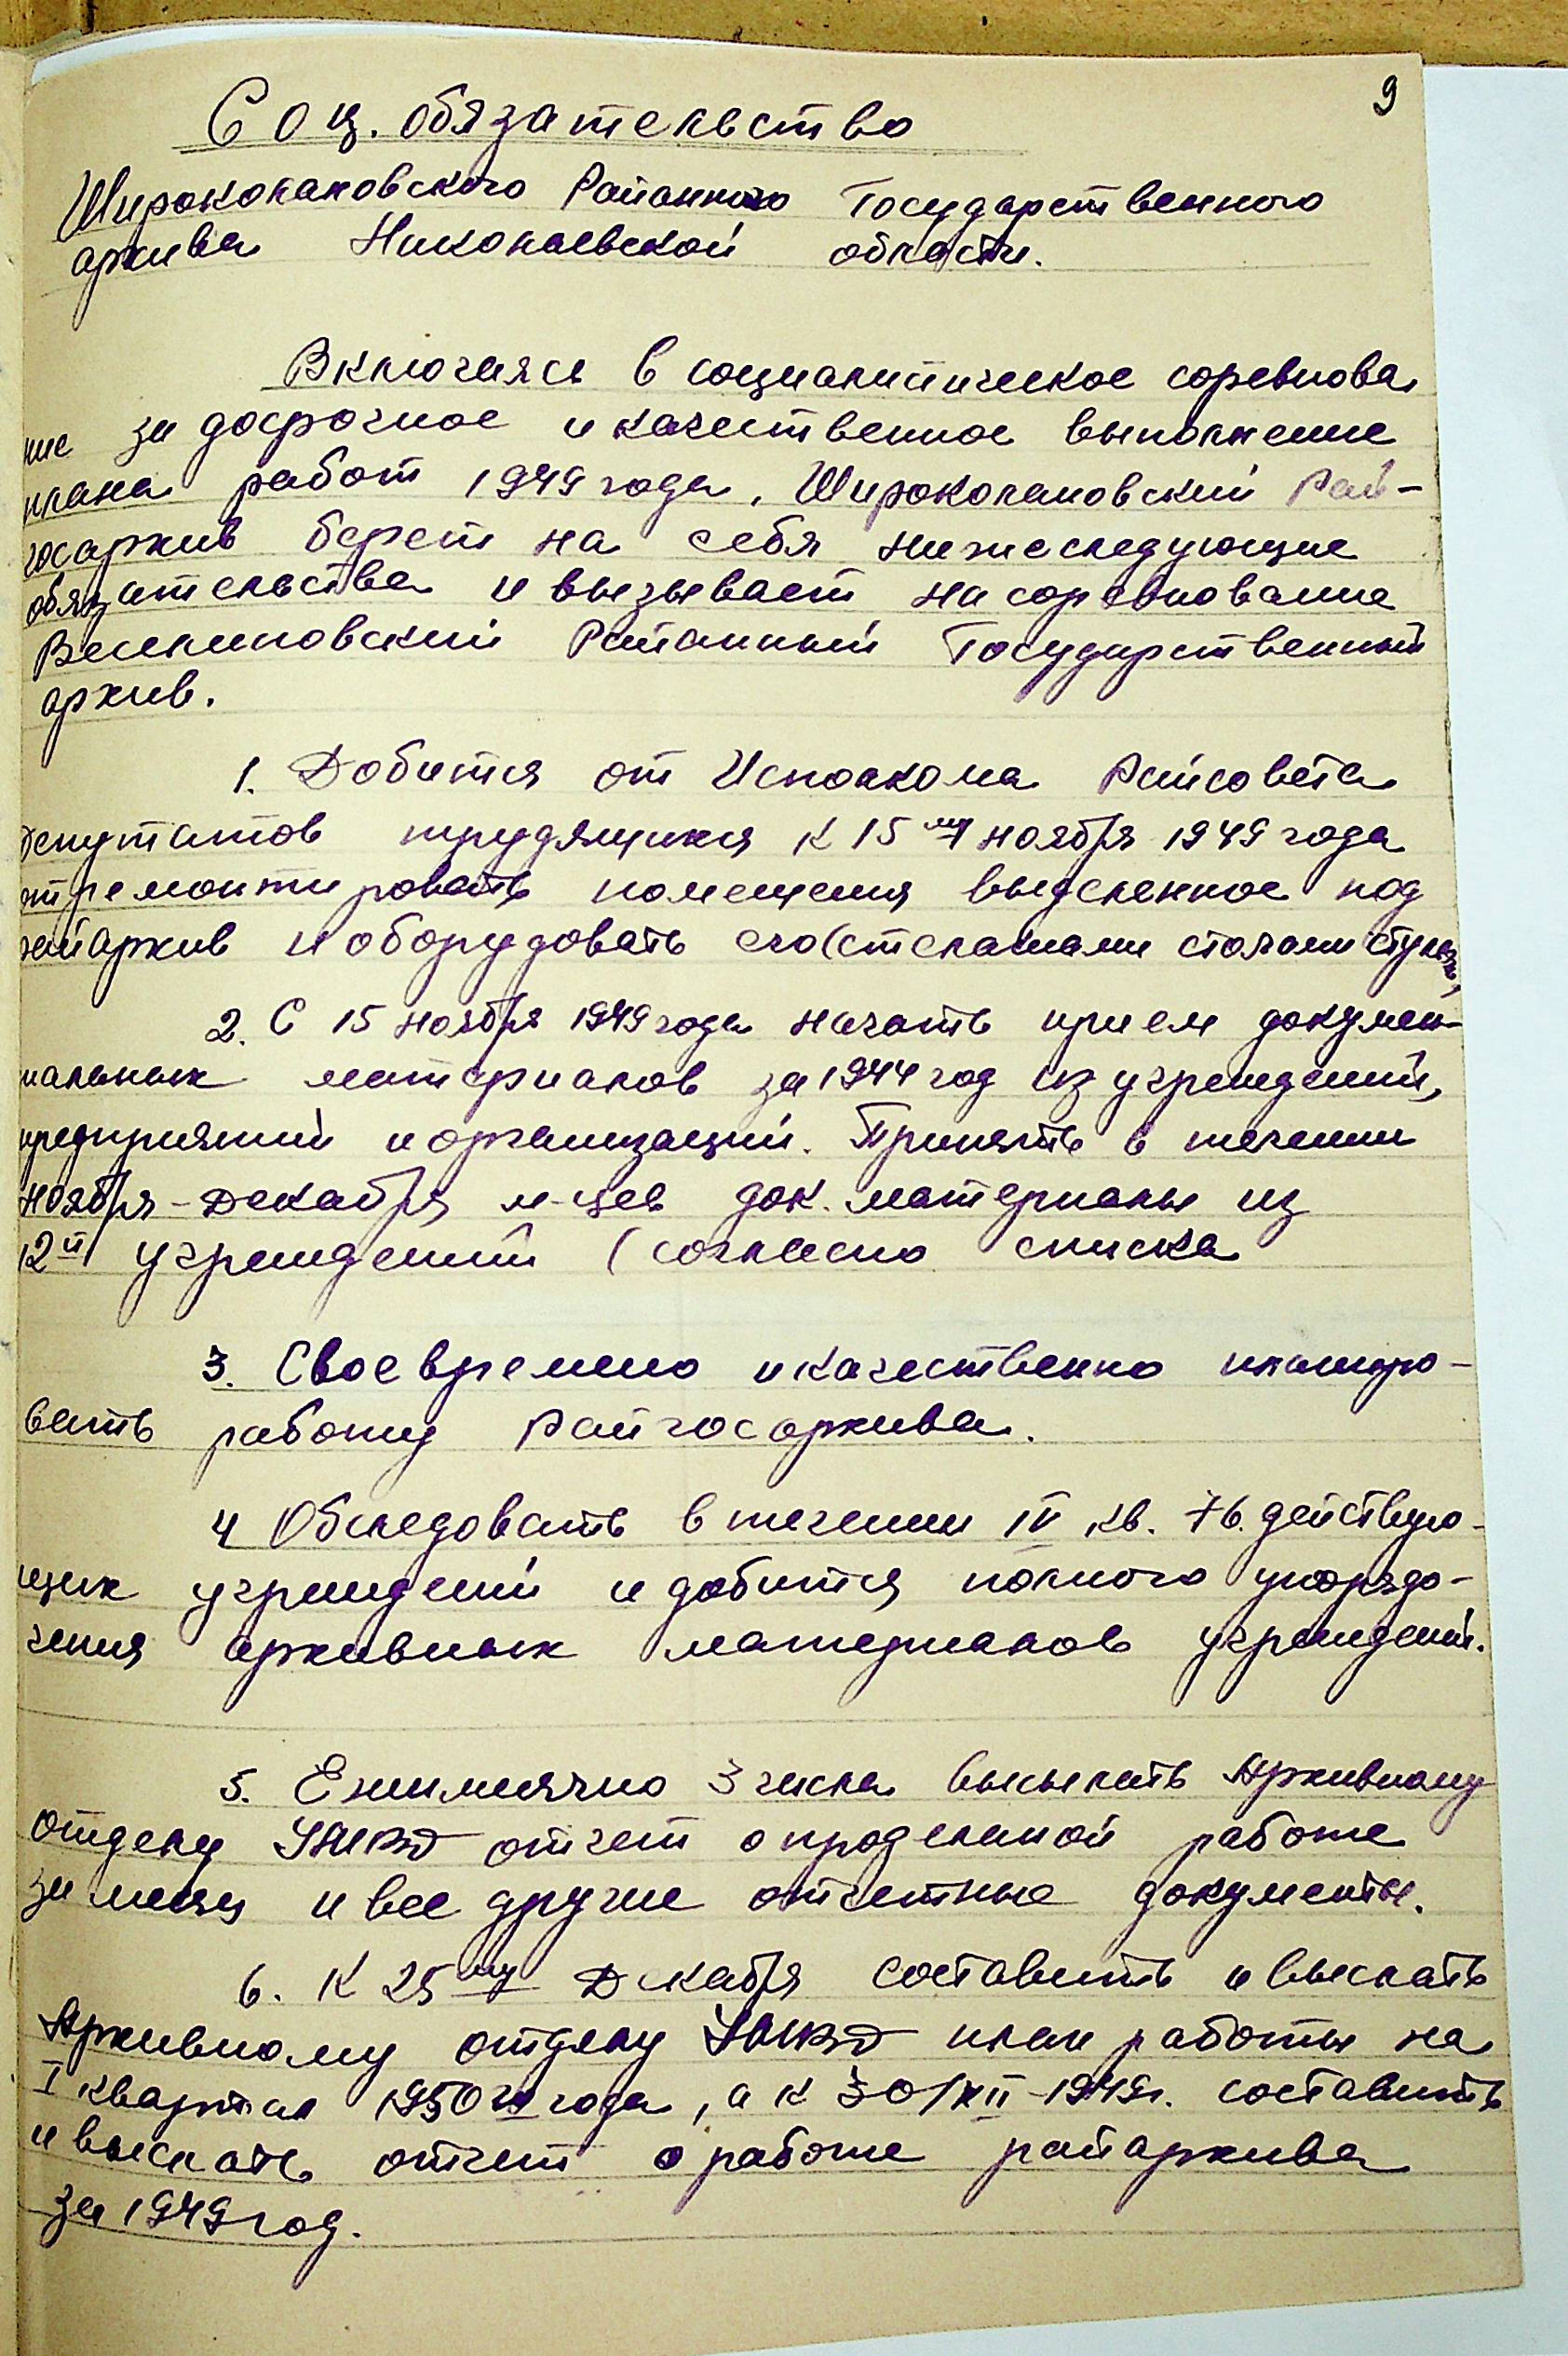 9
Соц. обязательство
Широколановского Районного Государственного
архива Николаевской области.
Включаясь в социалистическое соревнова
ние за досрочное и качественное выполнение
плана работ 1949 года, Широколановский Рай-
госархив берет на себя нижеследующие
обязательства и вызывает на соревнование
Веселиновский Районный Государственный
архив.
1. Добится от Исполкома Райсовета
депутатов трудящихся к 15му ноября 1949 года
отремонтировать помещения выделенное под
райархив и оборудовать его (стелажами столами стулями,
2. С 15 ноября 1949 года начать прием докумен-
тальных материалов за 1944 год из учреждений,
предприятий и организаций. Принять в течении
ноября-декабря м-цев док. материалы из
12ти учреждений (согласно списка
3. Своевремено и качественно планиро-
вать работу Райгосархива.
4 Обследовать в течении IV кв. 76. действую-
щих учреждений и добится полного упорядо-
чения архивных материалов учреждений.
5. Ежимисячно 3 числа высылать Архивному
отделу УМВД отчет о проделаной работе
за месяц и все другие отчетные документы.
6. К 25му Декабря составить и выслать
Архивному отделу УМВД план работы на
I квартал 1950го года, а к 30/XII-1949г. составить
и выслать отчет о работе райархива
за 1949 год.